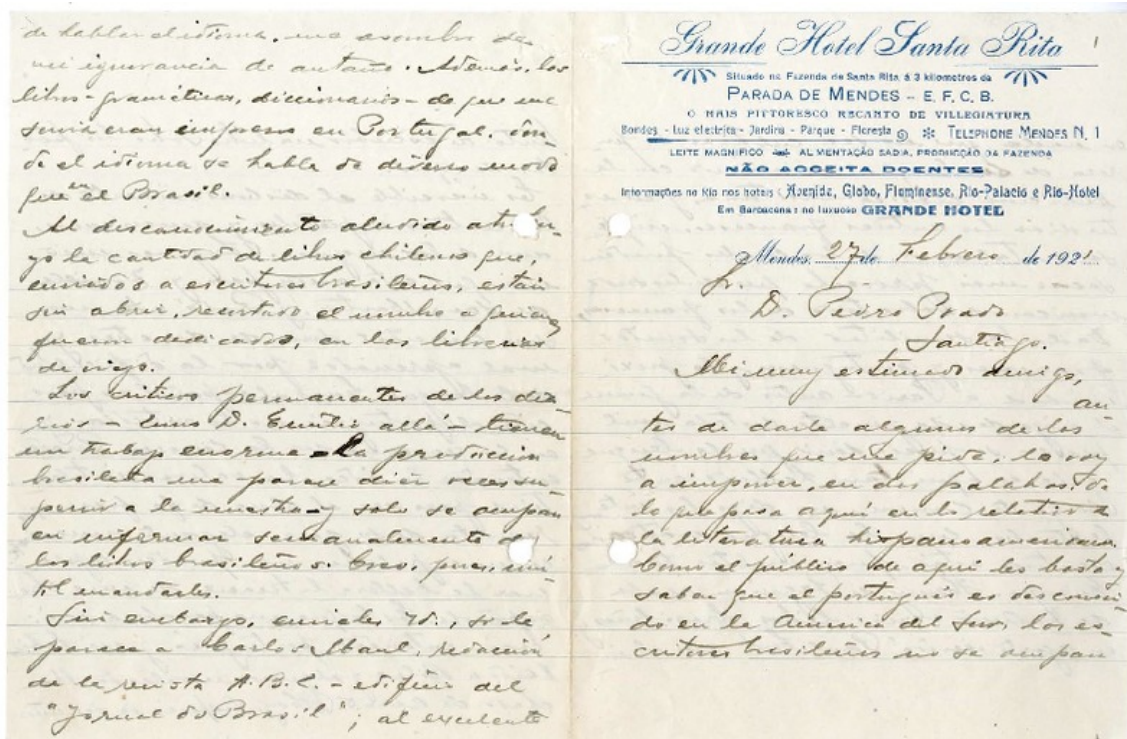 de hablar el idioma, me asombro de
mi ignorancia de antaño. Además, los
libros - gramáticas, diccionarios - de que me
servía eran impresos en Portugal, don-
de el idioma se habla de diverso modo
que en el Brasil.
Al desconocimiento aludido atribu-
yo la cantidad de libros chilenos que,
enviados a escritores brasileños, están
sin abrir, recortado el nombre a quienes
fueron dedicados, en las librerías
de viejo.
Los críticos permanentes de los dia-
rios - como D. Emilio allá - tienen
un trabajo enorme. La producción
brasileña me parece diez veces su-
perior a la nuestra y solo se ocupan
en informar semanalmente de
los libros brasileños. Creo, pues, inú-
til mandarles.
Sin embargo, envíeles Ud., si le
parece a Carlos Maul, redacción
de la revista A.B.C. - edificio del
"Jornal do Brasil"; al excelente
Grande Hotel Santa Rita
1
Situado na Fazenda de Santa Rita, á 3 kilometros da
PARADA DE MENDES - E. F. C. B.
O MAIS PITTORESCO RECANTO DE VILLEGIATURA
Bondes - Luz electrica - Jardins - Parque - Floresta TELEPHONE MENDES N. 1
LEITE MAGNIFICO ALIMENTAÇÃO SADIA, PRODUCÇÃO DA FAZENDA
NÃO ACCEITA DOENTES
Informações no Rio nos hoteis: Avenida, Globo, Fluminense, Rio-Palacio e Rio-Hotel
Em Barbacena: no luxuoso GRANDE HOTEL
Mendes, 27 de Febrero de 1921
Sr.
D. Pedro Prado
Santiago.
Mi muy estimado amigo,
an-
tes de darle algunos de los
nombres que me pide, lo voy
a imponer, en dos palabras, de
lo que pasa aquí en lo relativo a
la literatura hispanoamericana.
Como el público de aquí les basta y
saben que el portugués es desconoci-
do en la America del Sur, los es-
critores brasileños no se ocupan